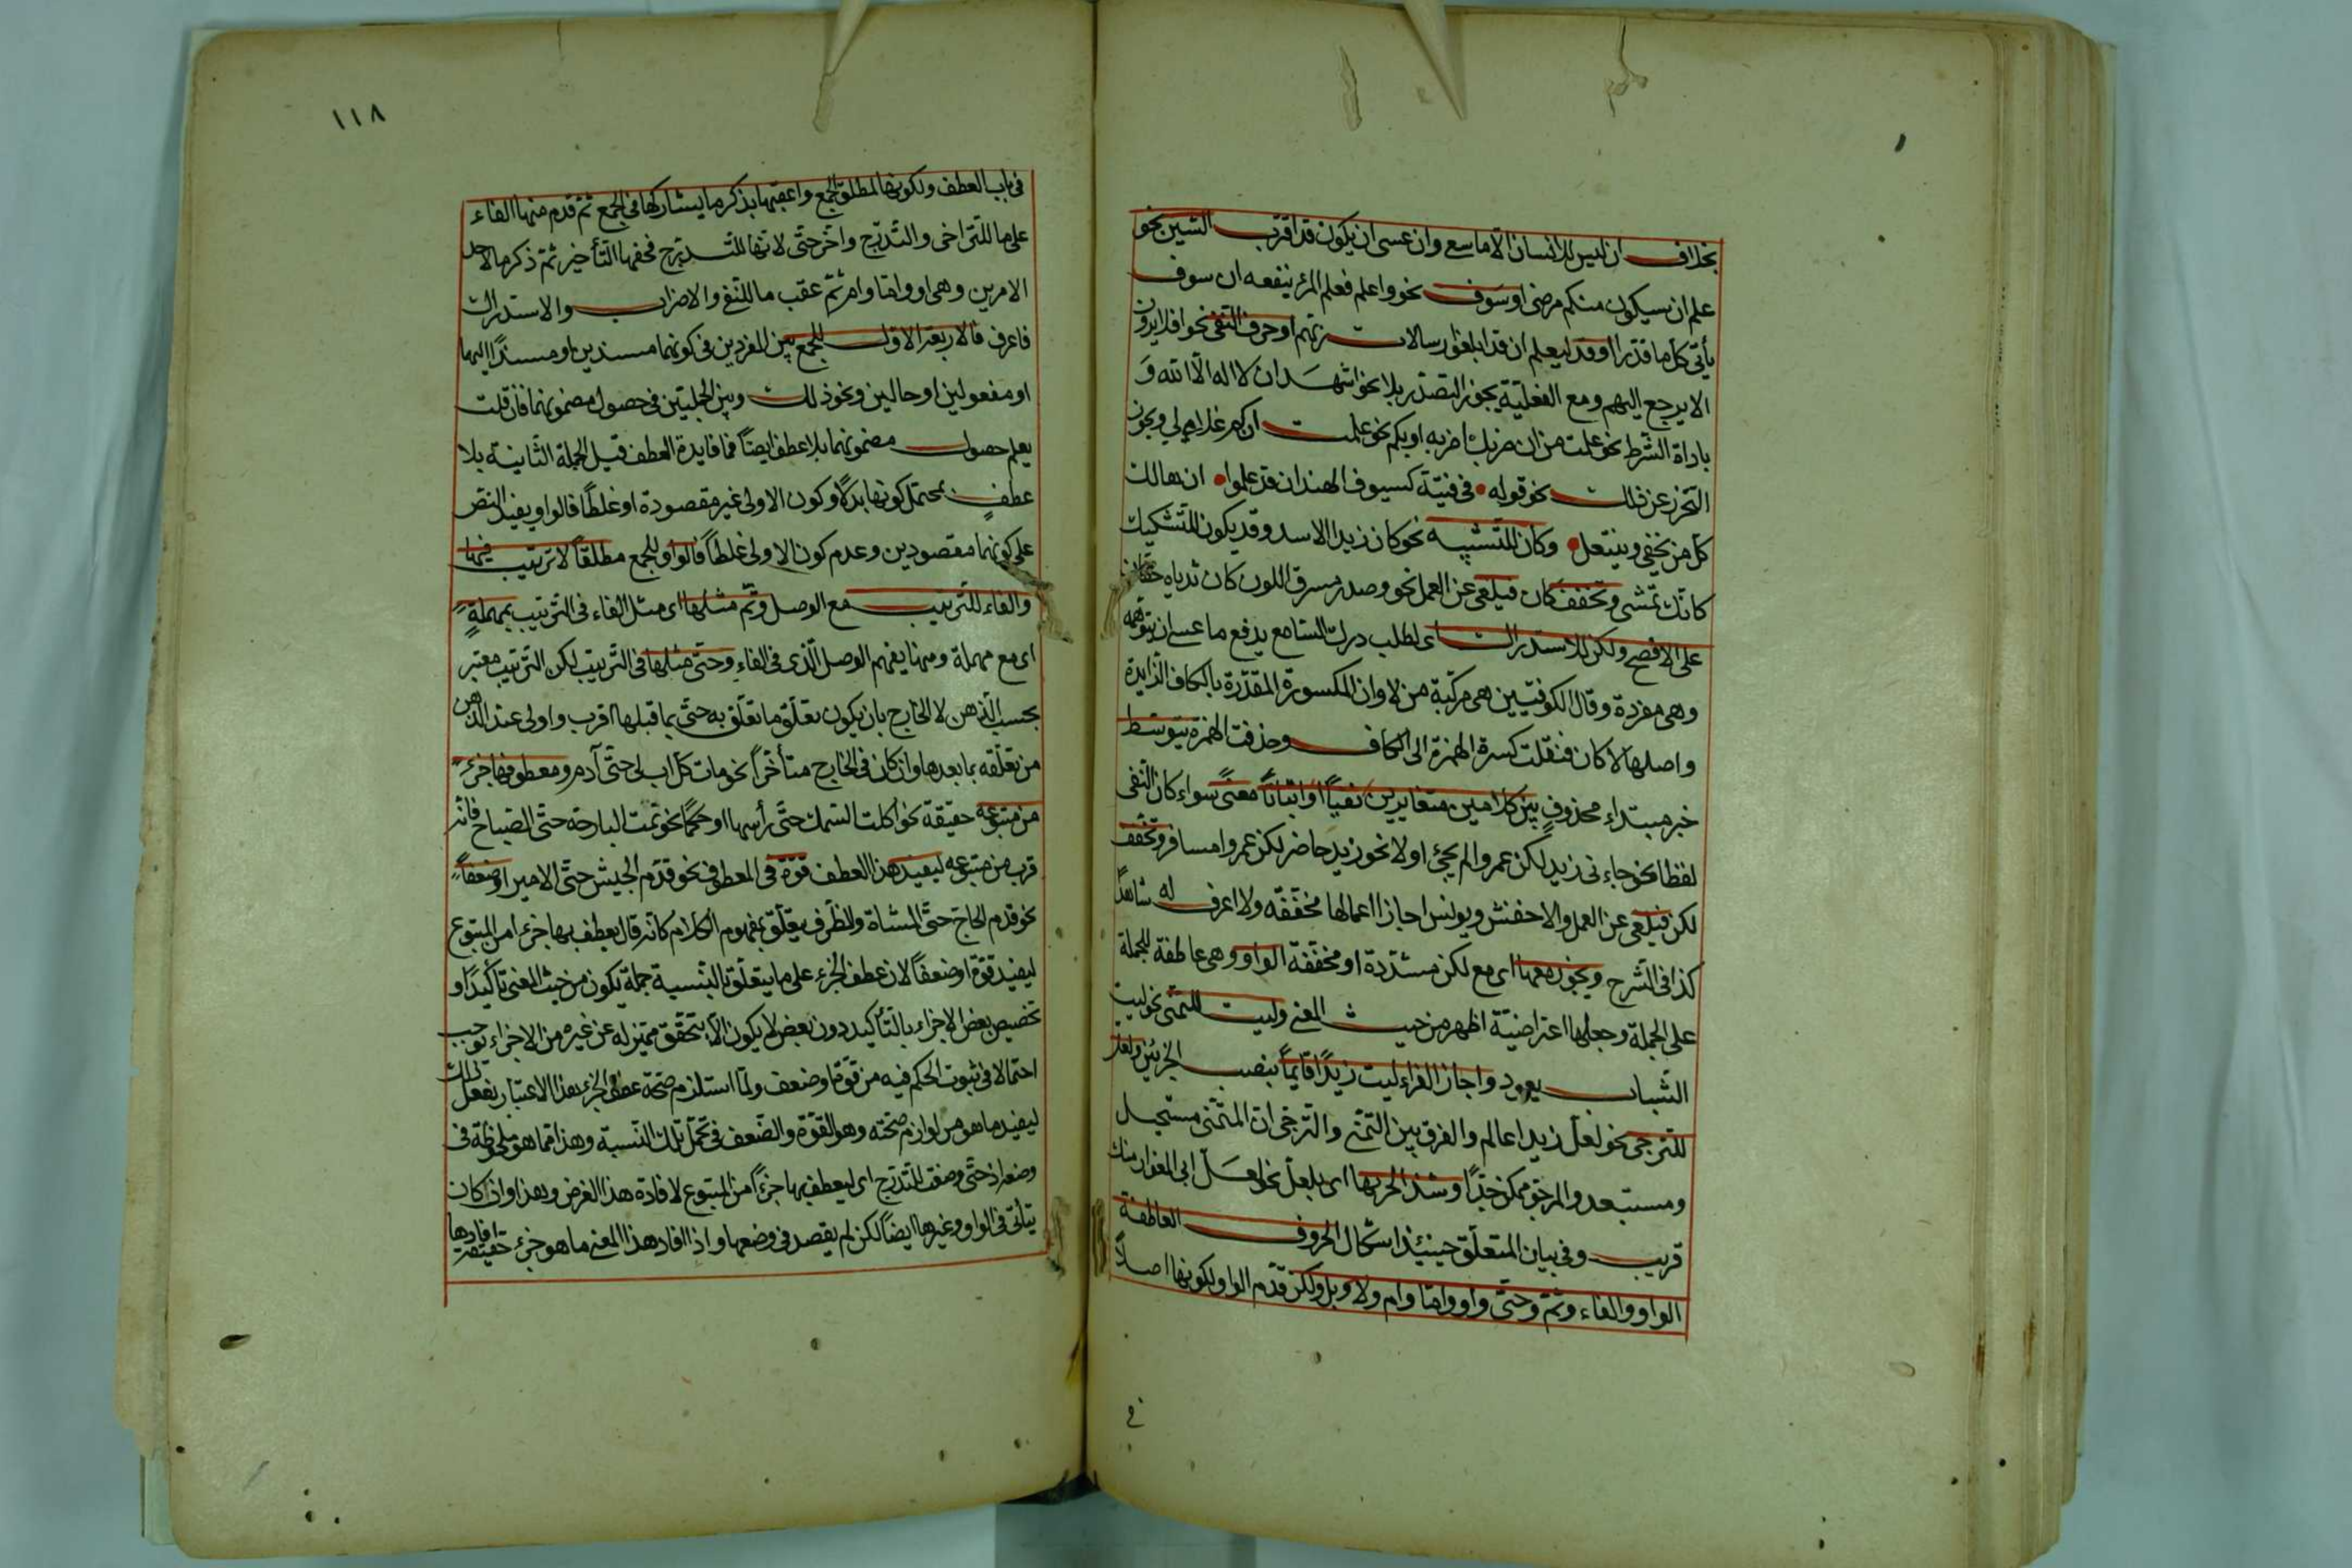 بخلاف ان ليس للانسان الا ما سعى وان عسى ان يكون قد اقترب السين نحو
علم ان سيكون منكم مرضى او سوف نحو واعلم فعلم المرء ينفعه ان سوف
يأتي كل ما قدرا او قد ليعلم ان قد ابلغوا رسالات ربهم او حرف النفي نحو افلا يرون
الا يرجع اليهم ومع الفعلية يجوز التصدر بلا نحو اشهد ان لا اله الا الله و
باداة الشرط نحو علمت من ان ضربك اضربه او بكم نحو علمت ان كم غلام لي ويجوز
التحرز عن ذلك نحو قوله في فتية كسيوف الهند ان قد علموا ان هالك
كل من يحفى وينتعل وكان للتشبيه نحو كان زيدا الاسد وقد يكون للتشكيك
كانك تمشي وتخفف كان فيلغى عن العمل نحو وصدر مشرق اللون كان ثدياه حقان
على الافصح ولكن للاستدراك اي لطلب درك السامع يدفع ما عسى ان يتوهمه
وهي مفردة وقال الكوفيين هي مركبة من لا وان المكسورة المقدرة بالكاف الزايدة
واصلها لا كان فنقلت كسرة الهمزة الى الكاف وحذفت الهمزة يتوسط
خبر مبتداء محذوف بين كلامين متغايرين نفيا او اثباتا معنى سواء كان النفي
لفظا نحو جاءني زيد لكن عمروا لم يجئ او لا نحو زيد حاضر لكن عمروا مسافر وتخفف
لكن فيلغى عن العمل والاخفش ويونس اجازا اعمالها مخففه ولا اعرف له شاهدا
كذا في الشرح ويجوز معها اي مع لكن مشددة او مخففة الواو وهي عاطفة للجملة
على الجملة وجعلها اعتراضية اظهر من حيث المعنى وليت للتمنى نحو ليت
الشباب يعود واجاز الفراء ليت زيدا قايما بنصب الجزئين ولعل
للترجى نحو لعل زيدا عالم والفرق بين التمنى والترجى ان المتمنى مستحيل
ومستبعد والمرجو ممكن جدا وشذ الجر بها اي بلعل نحو لعل ابي المغوار منك
قريب وفي بيان المتعلق حينئذ اشكال الحروف العاطفة
الواو والفاء وثم وحتى واو واما وام ولا وبل ولكن قدم الواو لكونها اصلا
في
١١٨
في باب العطف ولكونها لمطلق الجمع واعقبها بذكر ما يشاركها في الجمع ثم قدم منها الفاء
على ما للتراخى والتدريج واخر حتى لانها للتدريج فحقها التأخير ثم ذكر ما لاحد
الامرين وهي او واما وام ثم عقب ما للنفي والاضراب والاستدراك
فاعرف فالاربعة الاول للجمع بين المفردين في كونهما مسندين او مسندا اليهما
او مفعولين او حالين ونحو ذلك وبين الجملتين في حصول مضمونهما فان قلت
يعلم حصول مضمونهما بلا عطف ايضا فما فايدة العطف قيل الجملة الثانية بلا
عطف يحتمل كونها بدلا وكون الاولى غير مقصودة او غلطا فالواو يفيد النص
على كونهما مقصودين وعدم كون الاولى غلطا فالواو للجمع مطلقا لا ترتيب فيها
والفاء للترتيب مع الوصل وثم مثلها اي مثل الفاء في الترتيب بمهلة
اي مع مهملة ومنها يفهم الوصل الذي في الفاء وحتى مثلها في الترتيب لكن الترتيب معتبر
بحسب الذهن لا الخارج بان يكون تعلق ما تعلق به حتى بما قبلها اقرب واولى عند الذهن
من تعلقه بما بعدها وان كان في الخارج متأخرا نحو مات كل اب لي حتى آدم ومعطوفها جزء
من متبوعه حقيقة نحو اكلت السمك حتى رأسها او حكما نحو نمت البارحة حتى الصباح فانه
قرب من متبوعه ليفيد هذا العطف قوة في المعطوف نحو قدم الجيش حتى الامير او ضعفا
نحو قدم الحاج حتى المشاة والظرف يتعلق بمفهوم الكلام كانه قال يعطف بها جزءا من المتبوع
ليفيد قوة او ضعفا لان عطف الجزء على ما يتعلق النسبة جملة يكون من حيث المعنى تأكيدا و
تخصيص بعض الاجزاء بالتأكيد دون بعض لا يكون الا بتحقق مميز له عن غيره من الاجزاء توجب
احتمالا في ثبوت الحكم فيه من قوة او ضعف ولما استلزم صحة عطف الجزء بهذا الاعتبار تفعل ذلك
ليفيد ما هو من لوازم صحته وهو القوة والضعف في تحمل تلك النسبة وهذا مما هو ملحوظة في
وضعه اذ حتى وضعت للتدريج اي ليعطف بها جزءا من المتبوع لافادة هذا الغرض وهذا وان كان
يتأتى في الواو وغيرها ايضا لكن لم يقصد في وضعها واذا افاد هذا المعنى ما هو جزء حقيقة افادها